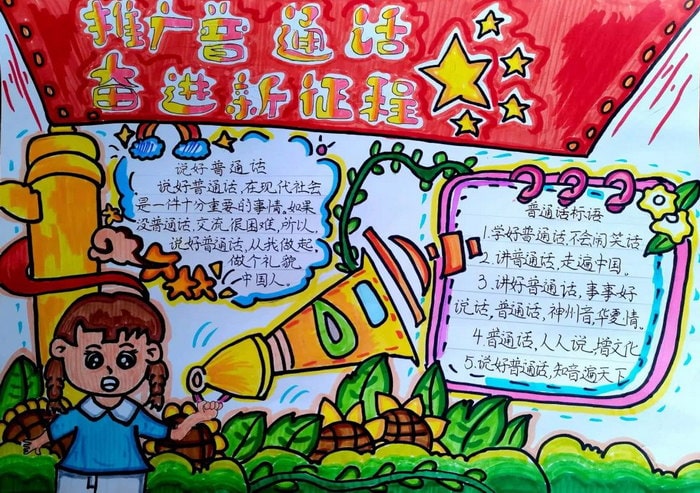 推广普通话
奋进新征程
说好普通话
说好普通话,在现代社会
是一件十分重要的事情。如果
没普通话,交流很困难,所以,
说好普通话,从我做起
做个礼貌
中国人。
普通话标语
1.学好普通话,不会闹笑话
2.讲普通话,走遍中国。
3.讲好普通话,事事好
说话,普通话,神州音,华夏情。
4.普通话,人人说,增文化
5.说好普通话,知音遍天下